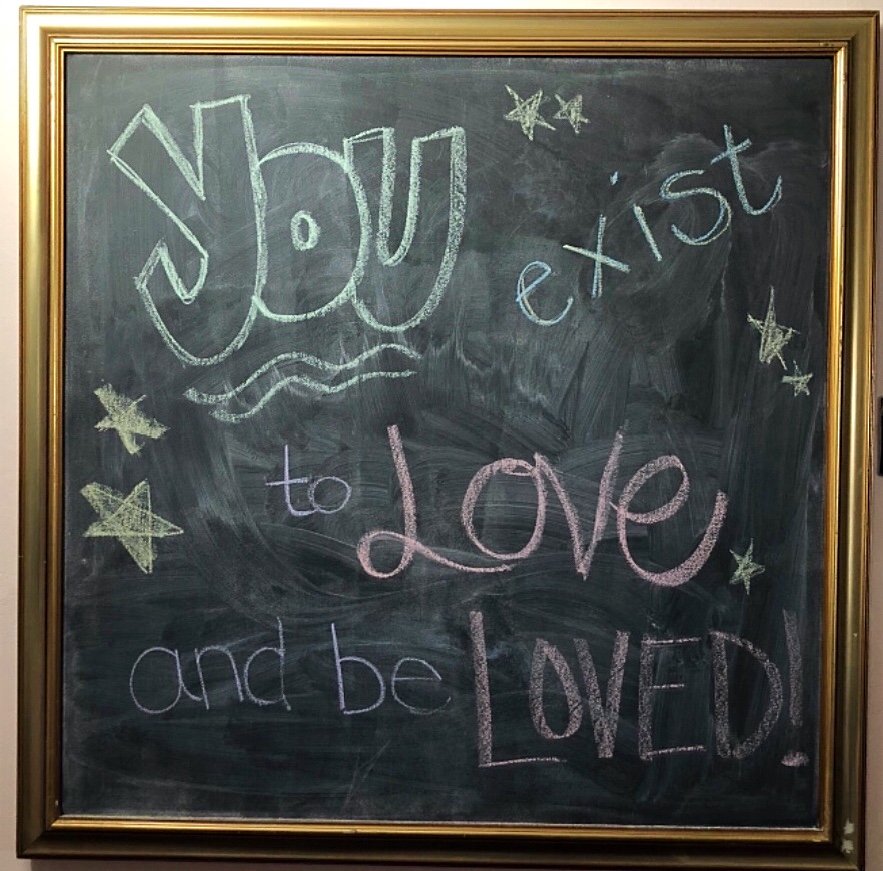 You exist
to Love
and be LOVED!